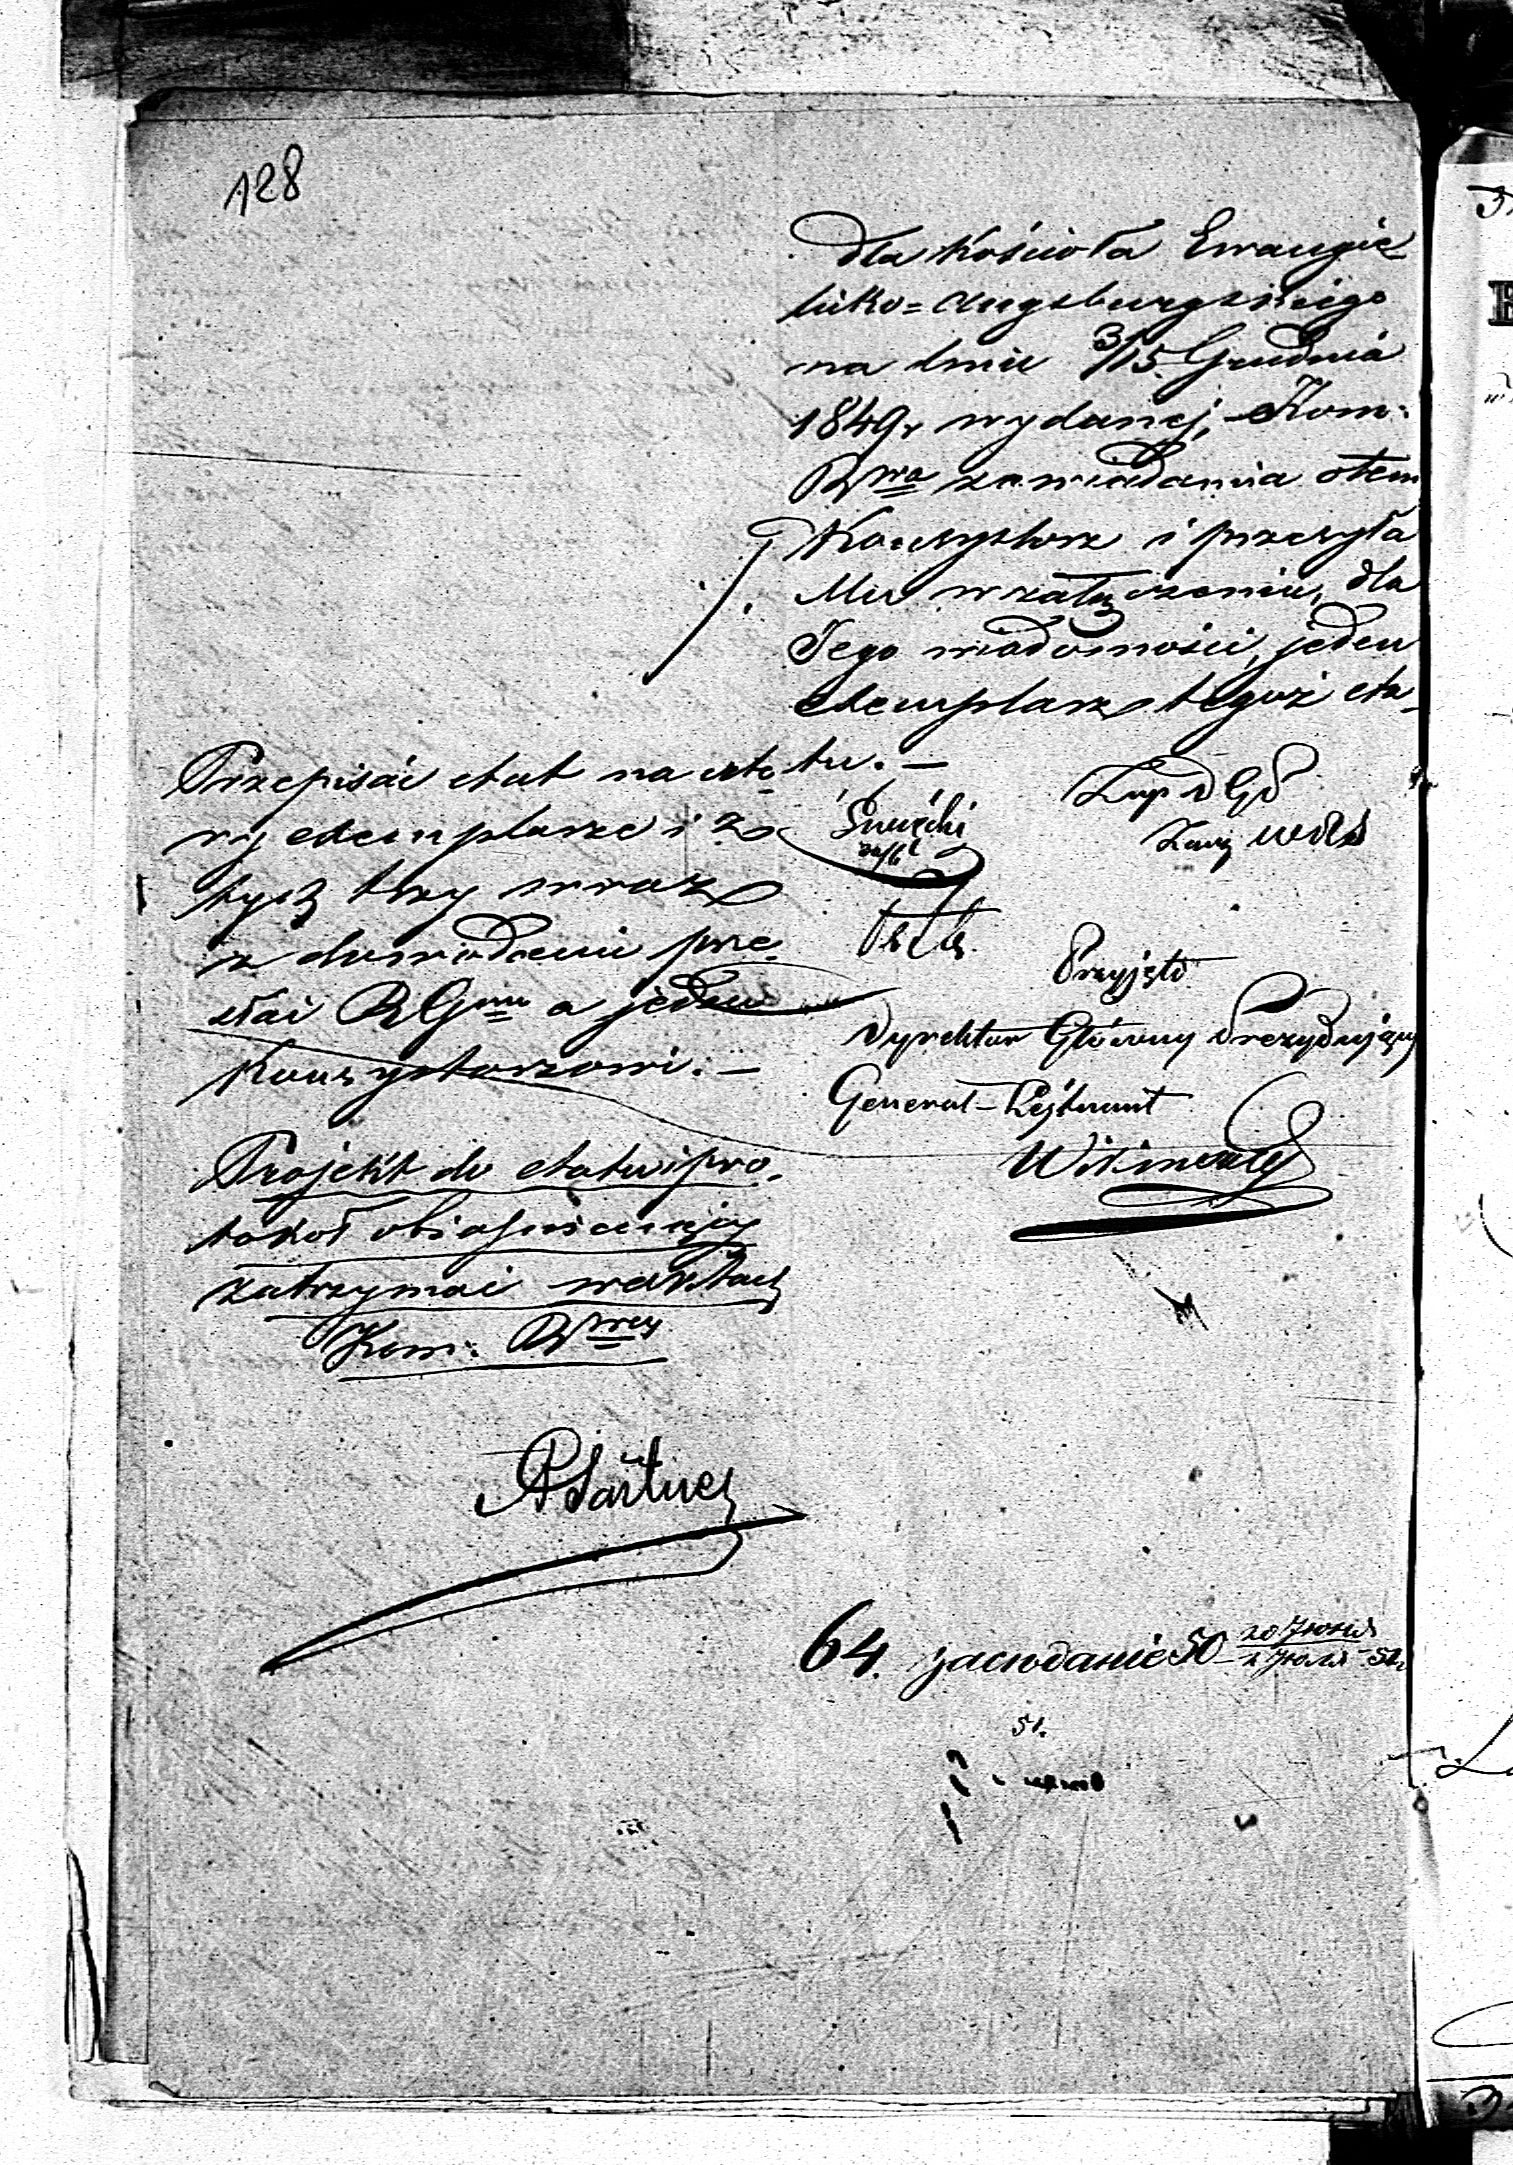 128
dla Kościoła Ewangie-
licko=Augsburgskiego
na dniu 3/15. Grudnia
1849 r wydanej, Kom:
Rwa zawiadamia o tem
Konsystorz i przesyła
Mu w załączeniu, dla
Jego wiadomości, jeden
exemplarz tegoż eta-
tu. —
Przepisać etat na czte-
ry exemplarze i z
tych trzy wraz
z dowodzeniu prze-
słać RGmu a jeden
Konsystorzowi. —
Projekt do etatu i pro-
tokoł obiaśniający
zatrzymać w aktach
Kom: Rwey
Przyjęto
Dyrektor Główny Prezydujący
Generał-Lejtnant
Wikinski
64. заседание 50 20 Июня / 2 Июля 51
51.